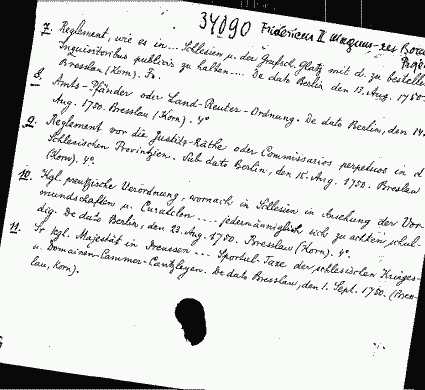 34090 Fridericus II magnus-rex Boru
7. Reglement, wie es in... Schlesien u. der Grafsch. Glatz mit d. zu bestelle
Inquisitoribus publicis zu halten.... De dato Berlin, den 13. Aug. 1750.
Bresslau (Korn). Fo.
8. Amts-Pfänder oder Land-Reuter-Ordnung. De dato Berlin, den 14.
Aug. 1750. Bresslau (Korn). 4°
9. Reglement vor die Justitz-Räthe oder Commissarios perpetuos in d
Schlesischen Provintzien. Sub dato Berlin, den 15. Aug. 1750. Breslau
(Korn). 4°.
10. Kgl. preußische Verordnung, wornach in Schlesien in Ansehung der Vor-
mundschaften u. Curatelen .... jedermänniglich sich zu achten schul-
dig. De dato Berlin, den 23. Aug. 1750. Bresslau (Korn). 4°.
11. Sr kgl. Majestät in Preussen ... Sportul-Taxe der schlesischen Krieges-
u. Domainen-Cammer-Cantzleyen. De dato Bresslau, den 1. Sept. 1750. (Bres-
lau, Korn).